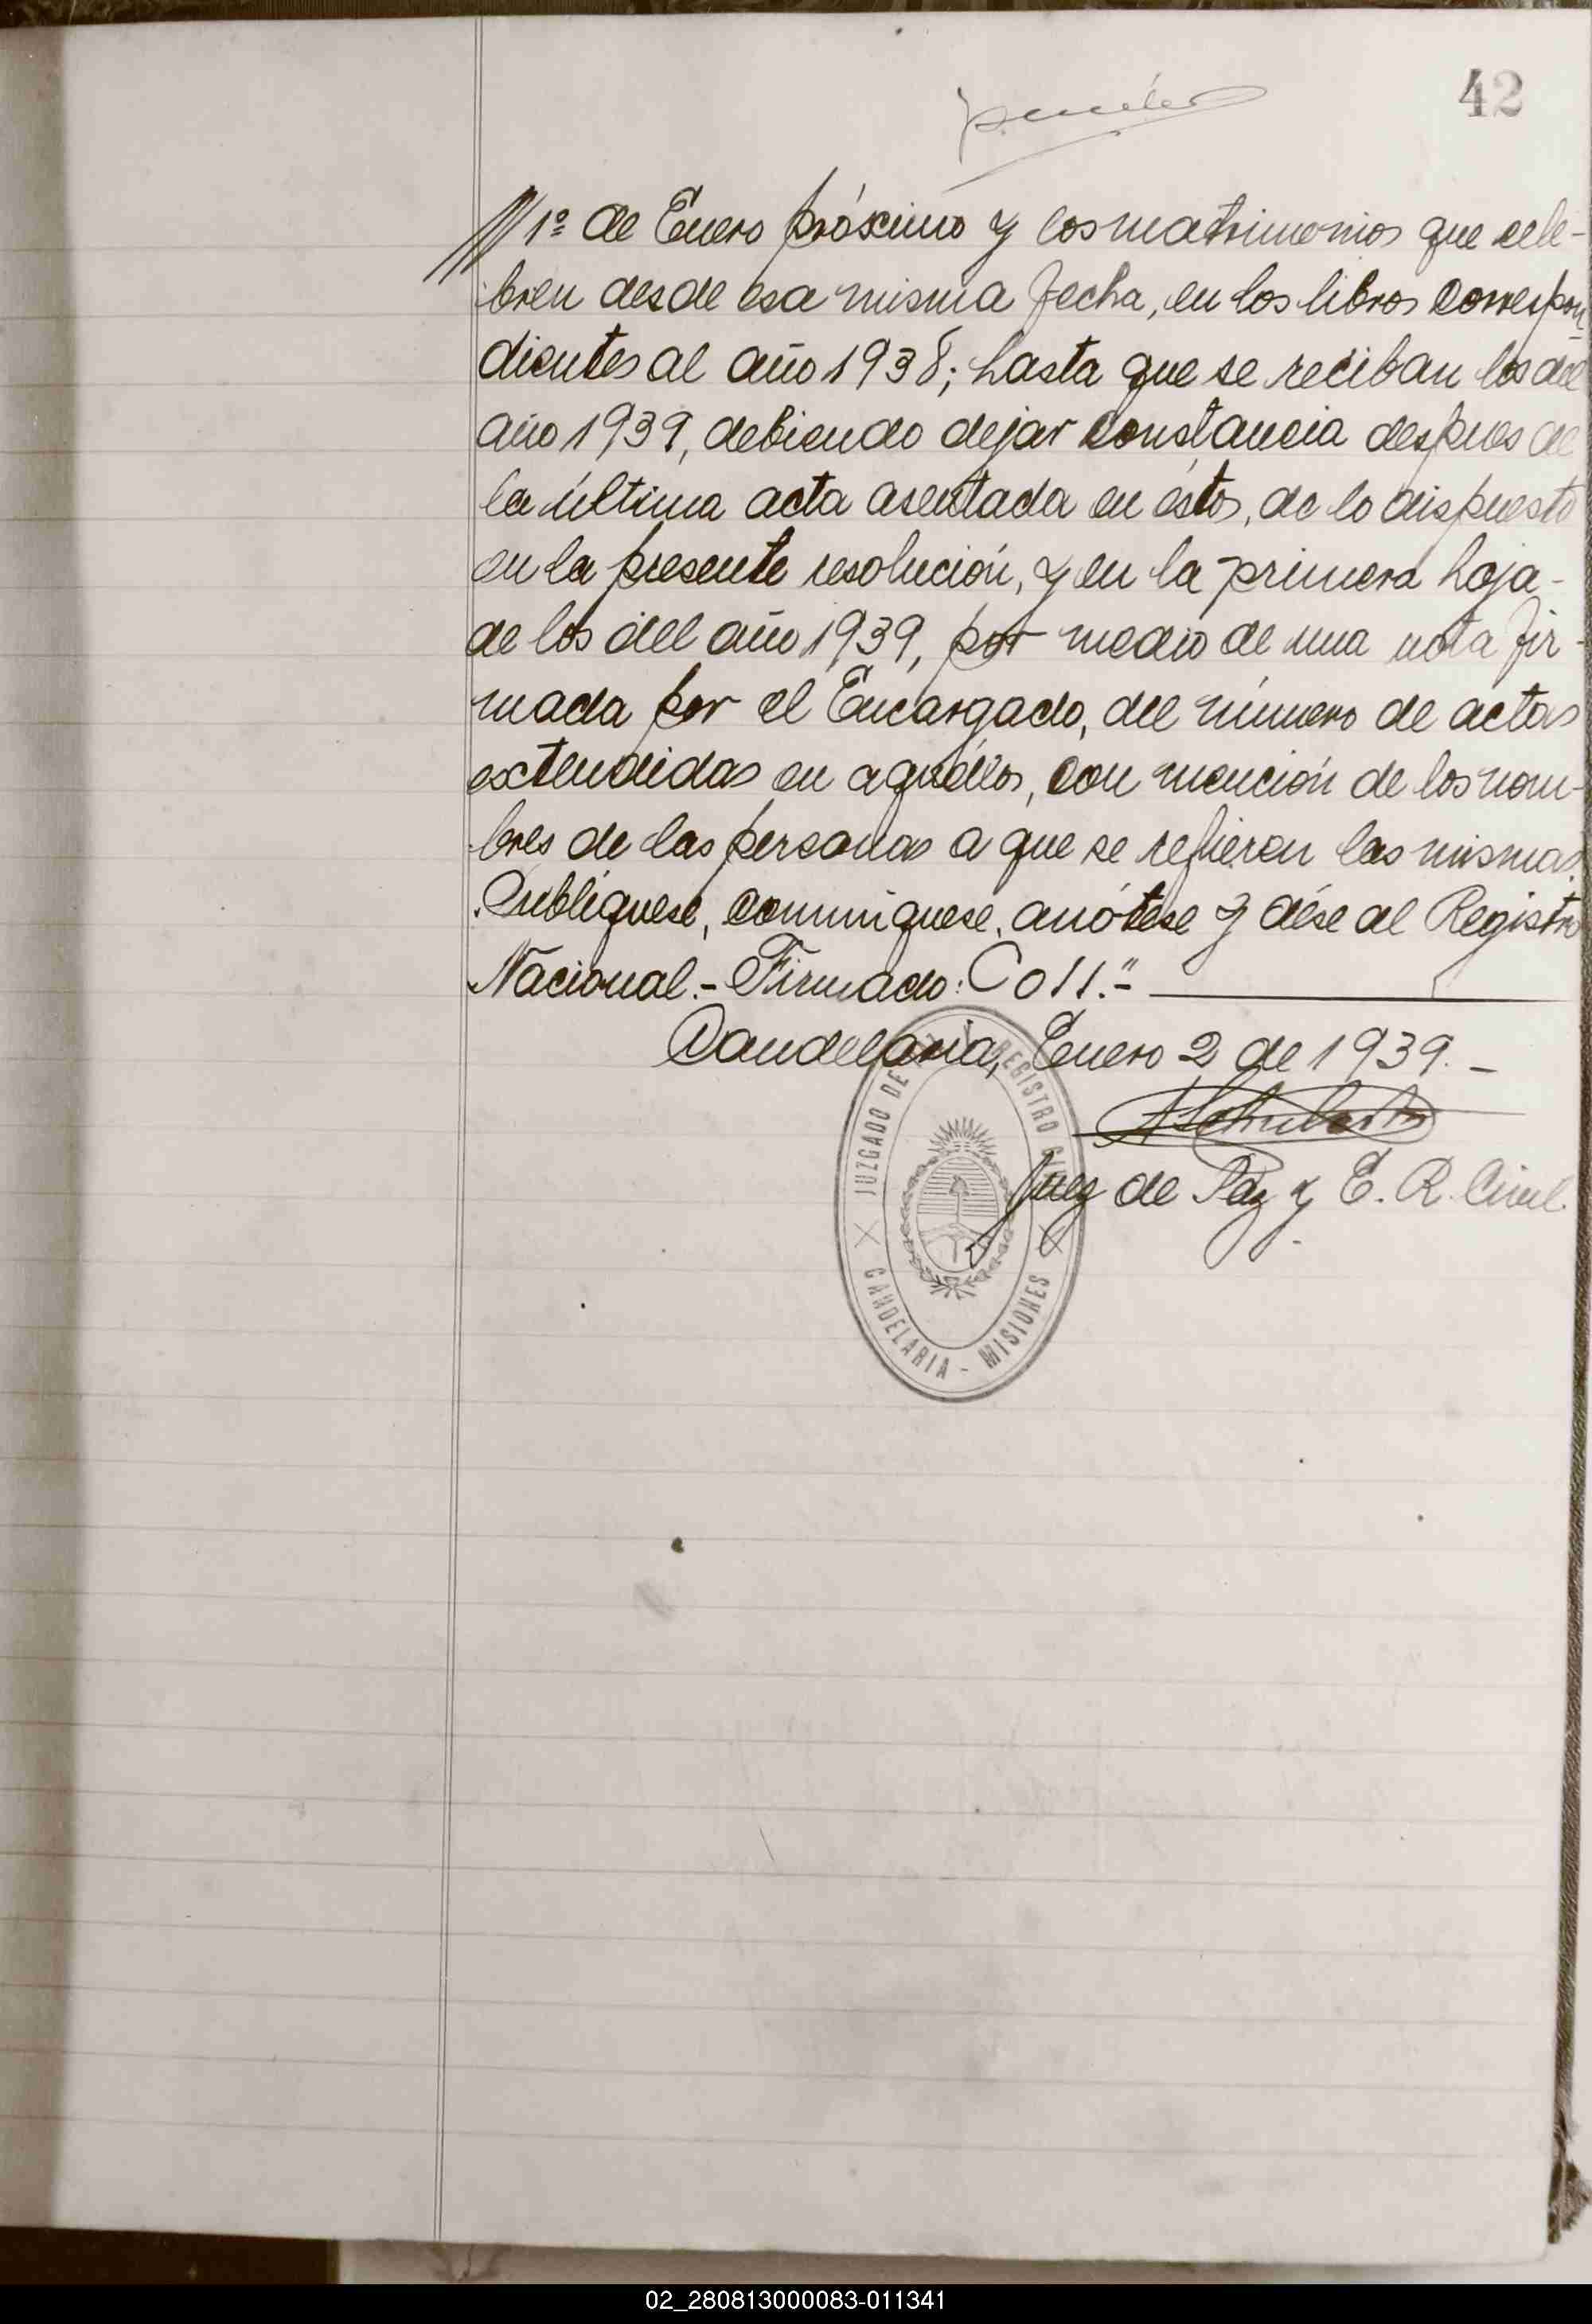 42
/// 1º de Enero próximo y los matrimonios que cele-
bren desde esa misma fecha, en los libros correspon
dientes al año 1938; hasta que se reciban los del
año 1939, debiendo dejar constancia despues de
la última acta asentada en éstos, de lo dispuesto
en la presente resolución, y en la primera hoja-
de los del año 1939, por medio de una nota fir-
mada por el Encargado, del número de actas
extendidas en aquéllos, con mención de los nom-
bres de las personas a que se refieren las mismas.
Publíquese, comuníquese, anótese y dése al Registro
Nacional.- Firmado: Coll."-
Candelaria, Enero 2 de 1939.-
Juez de Paz y E. R. Civil.
JUZGADO DE REGISTRO
CANDELARIA - MISIONES
02_280813000083-011341